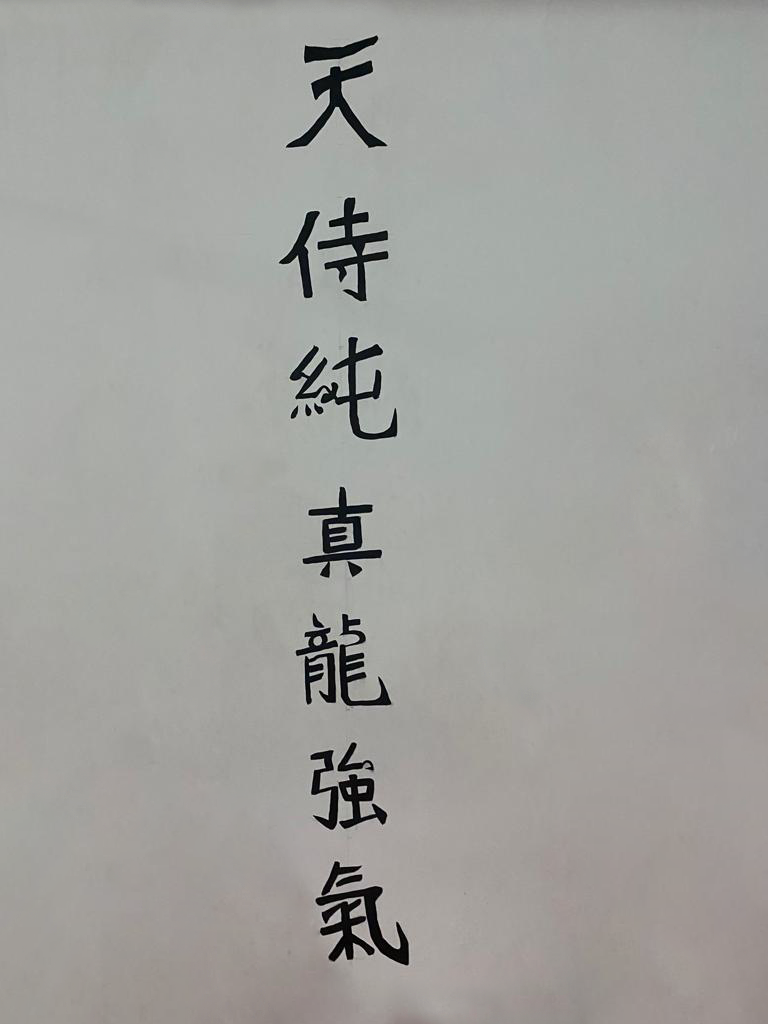 天侍純真龍強氣